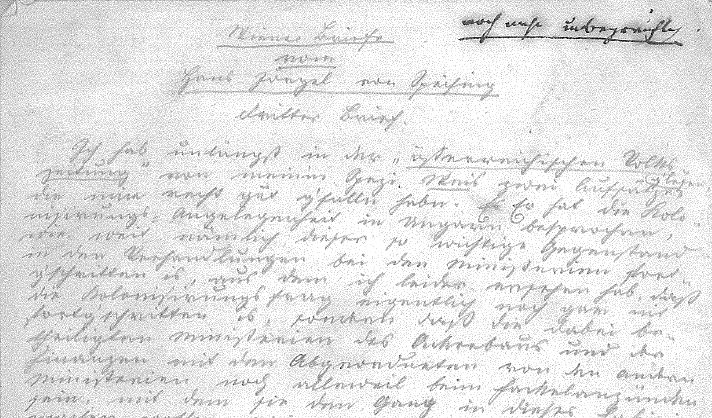 noch nicht
Wiener Briefe
vom
Hans Jörgel von Speising
Dritter Brief.
Ich hab unlängst in der „österreichischen Volks
zeitung" von meinem zwei Aufsätze g'lesen,
die mir recht gut g'falln habn. Es hat die Kolo-
nisirungs-Angelegenheit in Ungarn besprochen,
wie weit nämlich dieser so wichtige Gegenstand
in den Verhandlungen bei den Ministerien fort-
g'schritten is, aus dem ich leider ersehen hab, daß
die Kolonisirungsfrag eigentlich noch gar nit
fortg'schritten is, sondern daß die dabei be-
theiligten Ministerien des Ackerbaus und der
Finanzen mit den Abgeordneten von den andern
Ministerien noch alleweil beim Fackelanzünden
sein, mit dem sie den Gang in dieser